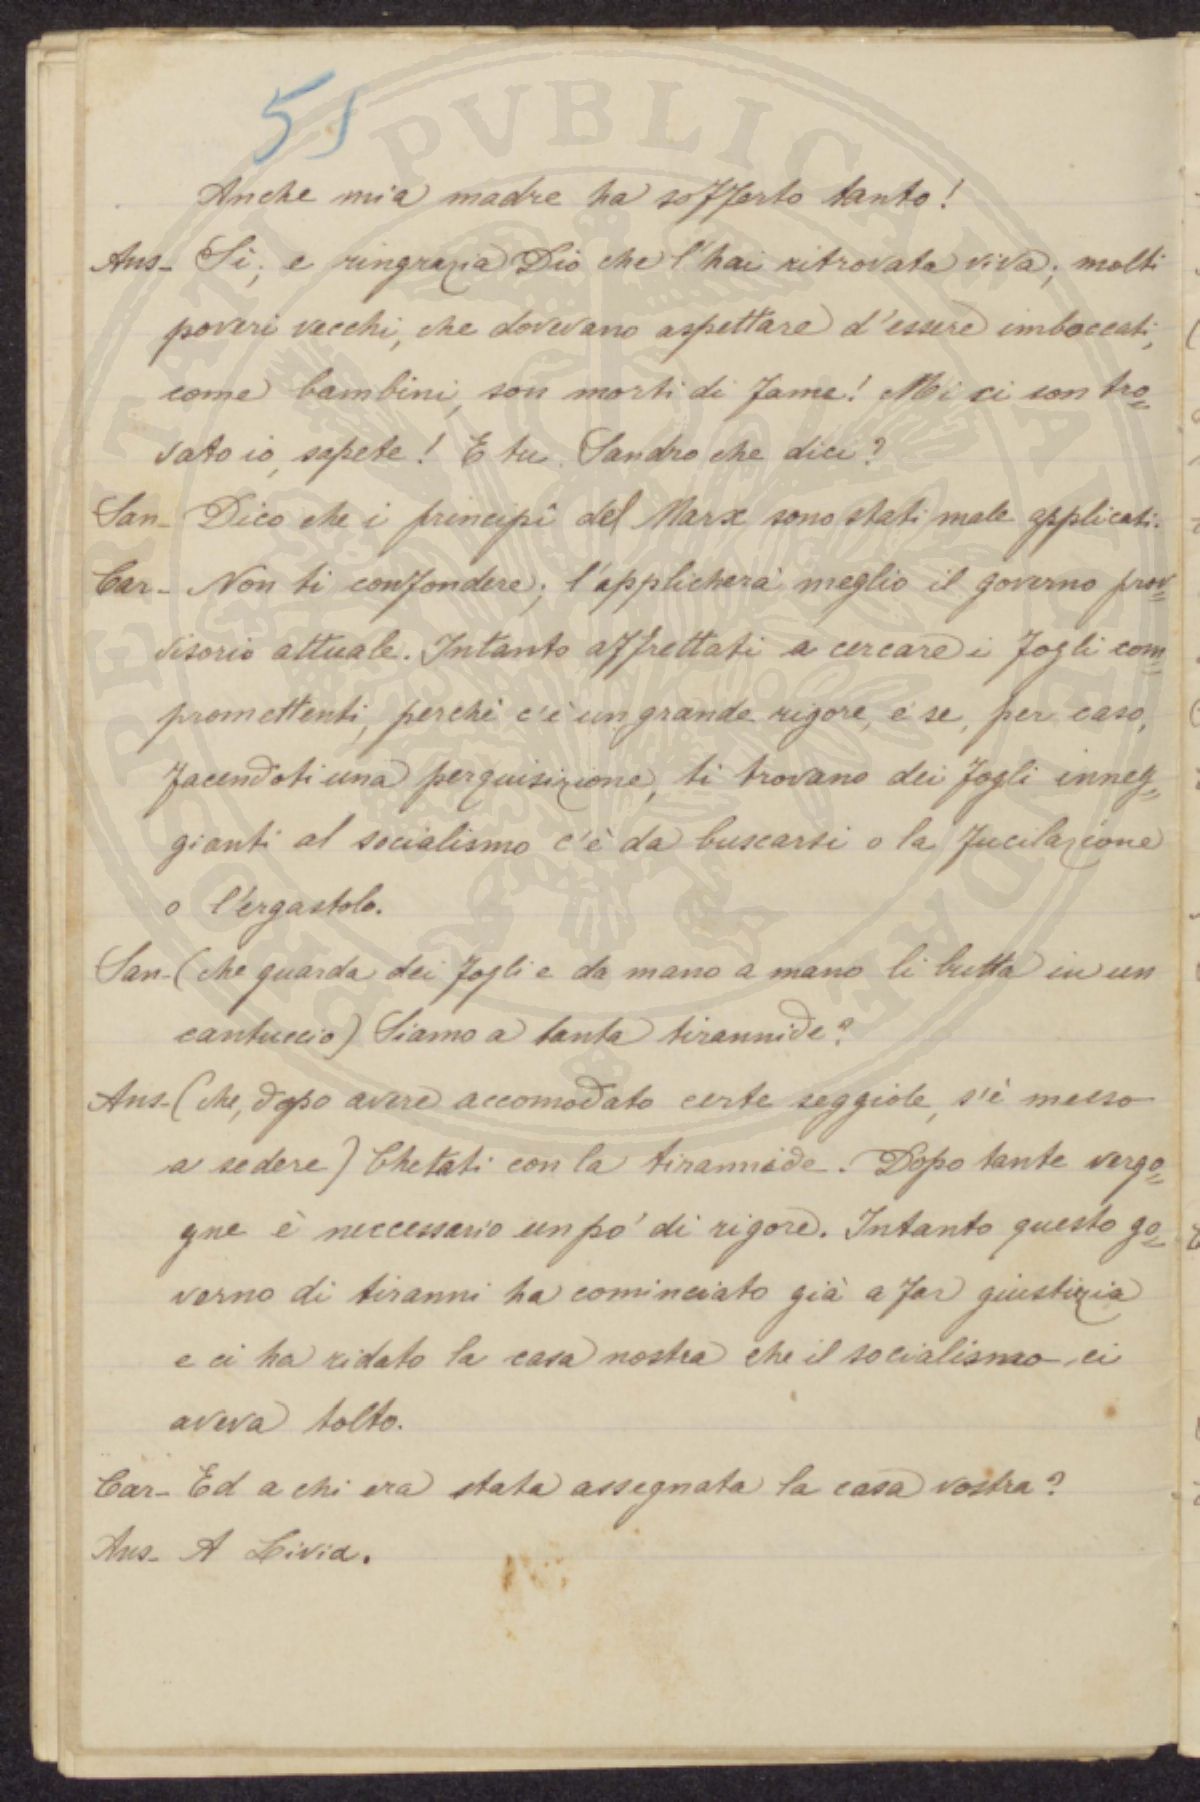 51
Anche mia madre ha sofferto tanto!
Aus- Sì; e ringrazia Dio che l'hai ritrovata viva; molti
poveri vecchi, che dovevano aspettare d'essere imboccati,
come bambini, son morti di fame! Mi ci son tro=
vato io, sapete! E tu Sandro che dici?
San- Dico che i principî del Marx sono stati male applicati.
Car- Non ti confondere; l'applicherà meglio il governo prov=
visorio attuale. Intanto affrettati a cercare i fogli com=
promettenti, perchè c'è un grande rigore, e se, per caso,
facendoti una perquisizione, ti trovano dei fogli inneg=
gianti al socialismo c'è da buscarsi o la fucilazione
o l'ergastolo.
San- (che guarda dei fogli e da mano a mano li butta in un
cantuccio) Siamo a tanta tirannide?
Aus- (che, dopo avere accomodato certe seggiole, s'è messo
a sedere) Chetati con la tirannide. Dopo tante vergo=
gne è neccessario un po' di rigore. Intanto questo go=
verno di tiranni ha cominciato già a far giustizia
e ci ha ridato la casa nostra che il socialismo ci
aveva tolto.
Car- Ed a chi era stata assegnata la casa vostra?
Aus- A Livia.